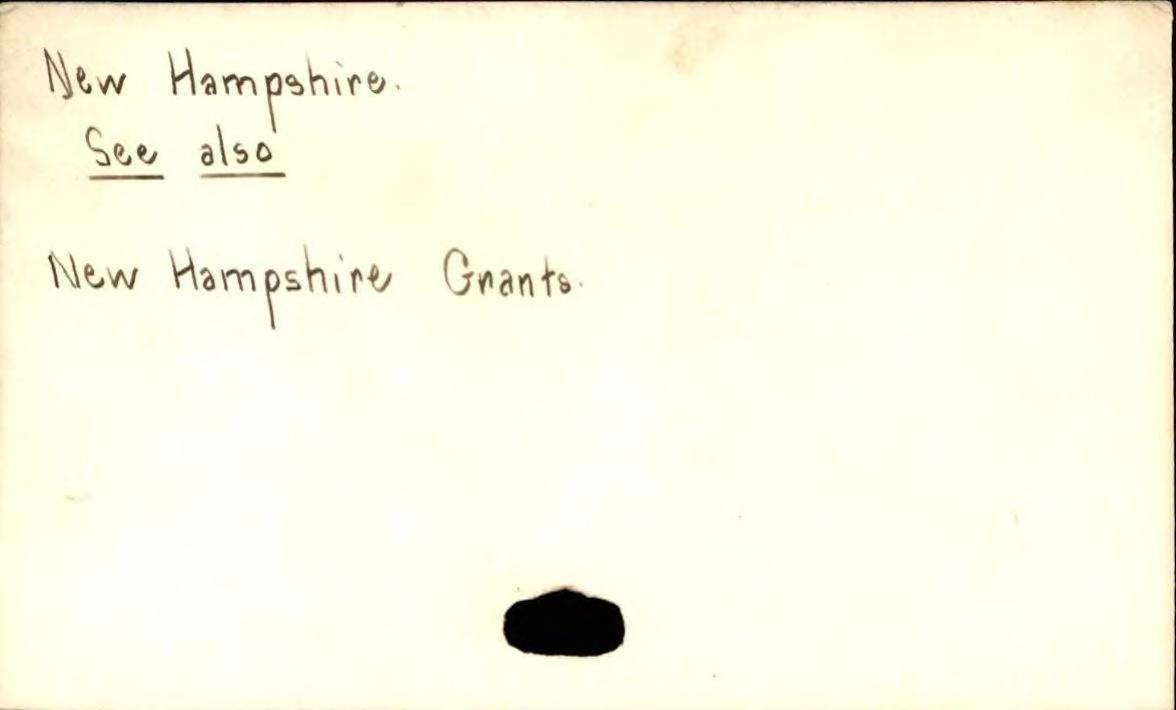 New Hampshire.
See also
New Hampshire Grants.